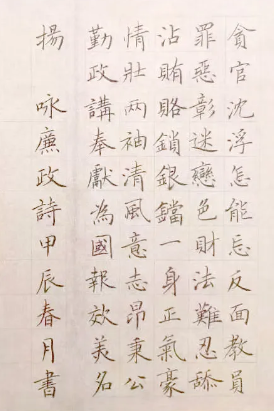 貪官沈浮怎能忘反面教員
罪惡彰迷戀色財法難忍舔
沾賄賂鎖銀鐺一身正氣豪
情壯两袖清風意志昂秉公
勤政講奉獻為國報效美名
揚 咏廉政詩甲辰春月書